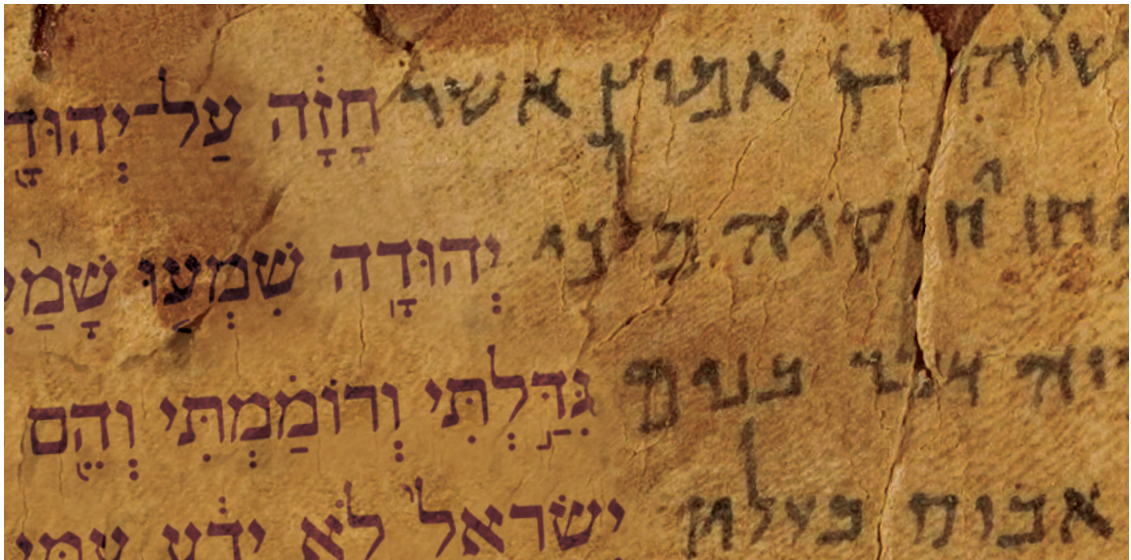 בן אמוץ אשר חָזָ֔ה עַל־יְהוּדָ֖ה
יחזקיה מלכי יְהוּדָֽה שִׁמְע֤וּ
דבר בנים גִּדַּ֣לְתִּי וְרוֹמַ֔מְתִּי וְהֵ֖ם
אבוס בעליו יִשְׂרָאֵל֙ לֹ֣א יָדַ֔ע עַמִּ֖י